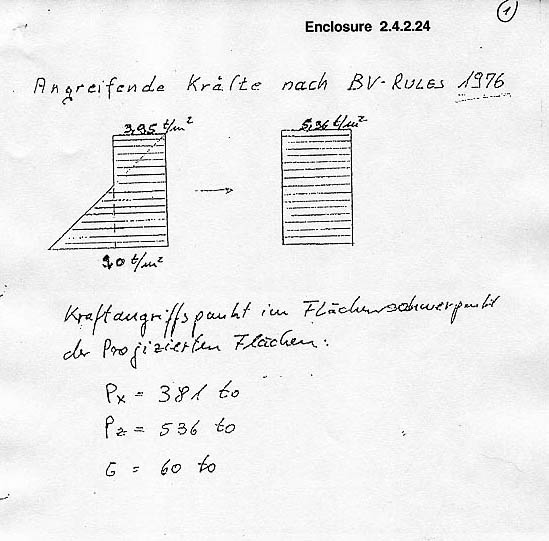 1
Enclosure 2.4.2.24
Angreifende Kräfte nach BV-RULES 1976
3,95 t/m²
5,36 t/m²
t/m²
Kraftangriffspunkt im Flächenschwerpunkt
der Projizierten Flächen:
Px = 381 to
Pz = 536 to
G = 60 to